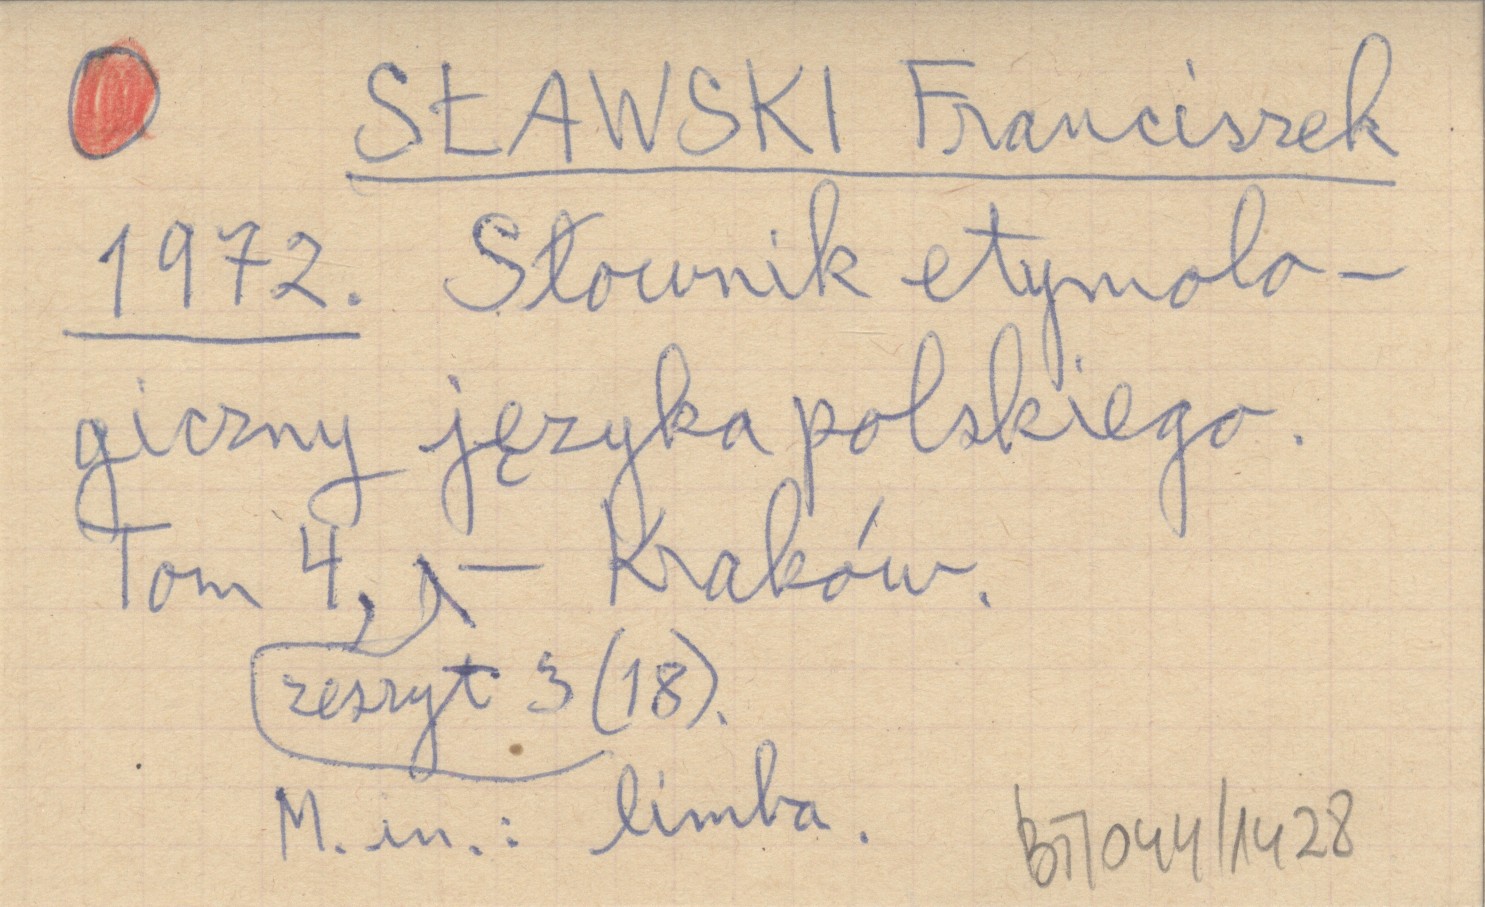 SŁAWSKI Franciszek
1972. Słownik etymolo-
giczny języka polskiego.
Tom 4, — Kraków.
zeszyt 3 (18).
M. in.: limba.
BT/044/1428